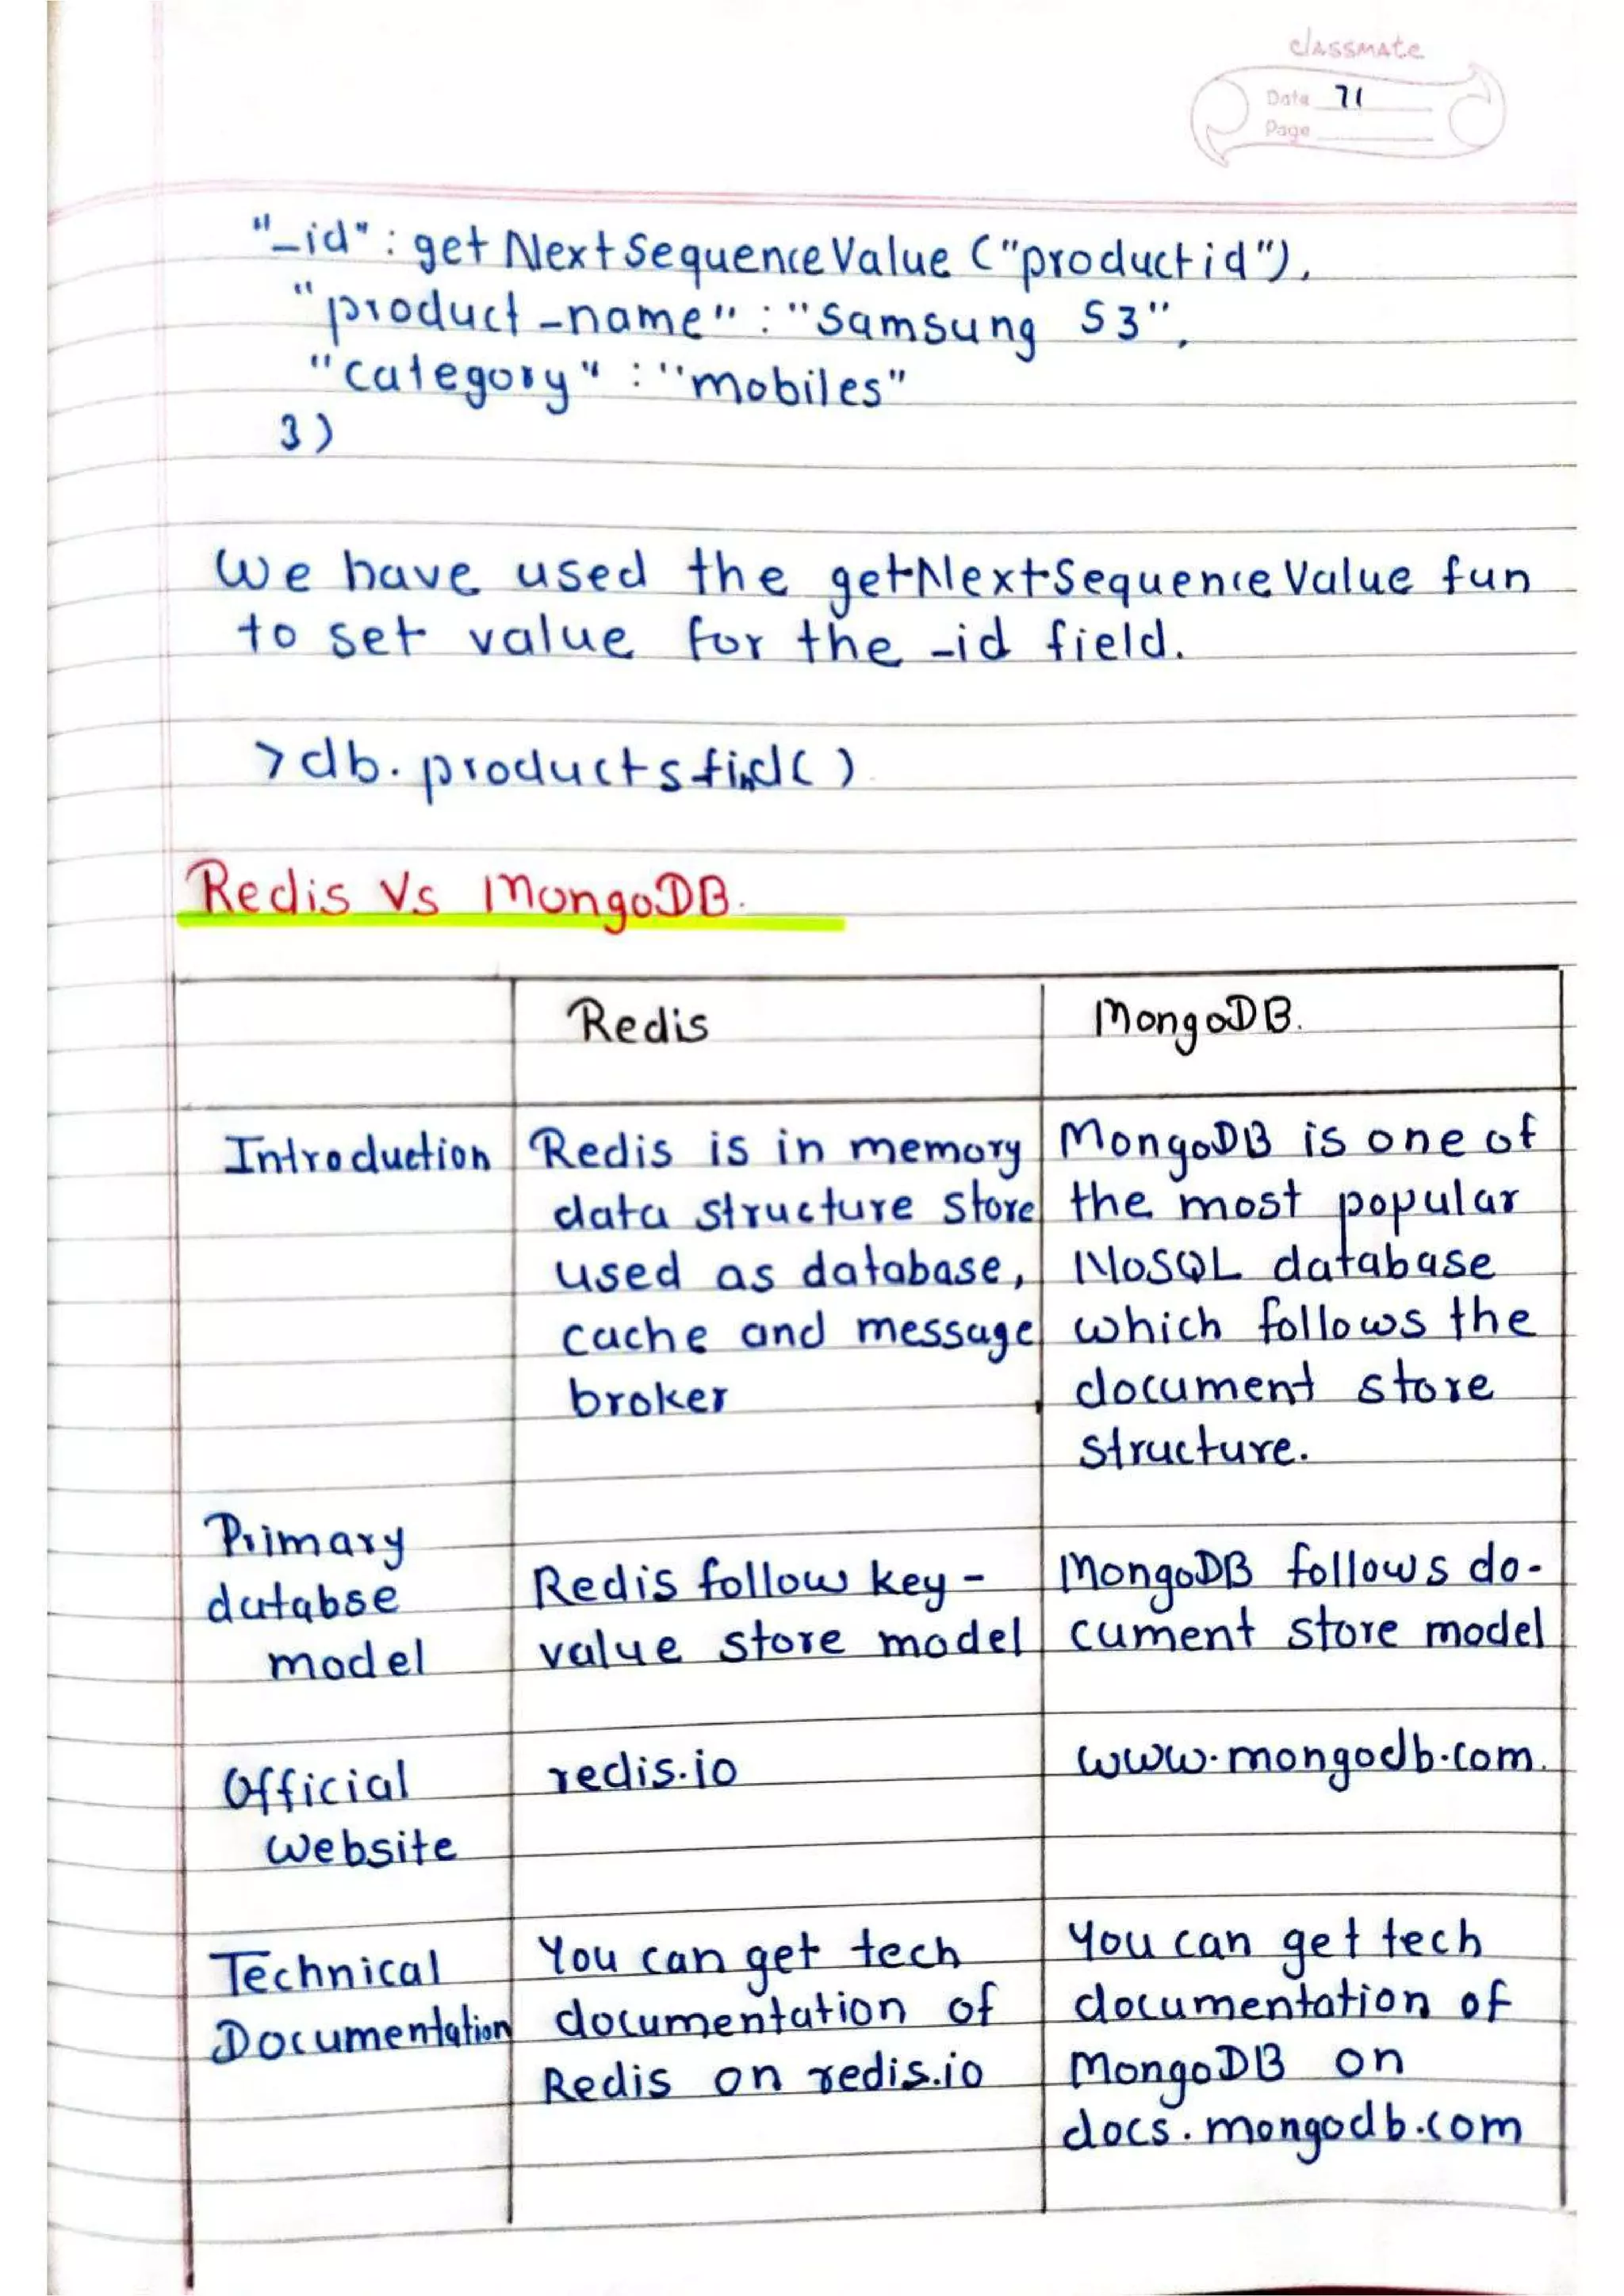 classmate
Date 71
Page
"_id" : getNextSequenceValue ("productid"),
"product_name" : "Samsung S3",
"category" : "mobiles"
})
We have used the getNextSequenceValue fun
to set value for the _id field.
>db.productsfind()
Redis Vs MongoDB.
Redis MongoDB.
Introduction Redis is in memory MongoDB is one of
data structure store the most popular
used as database, NoSQL database
cache and message which follows the
broker document store
structure.
Primary
databse Redis follow key- MongoDB follows do-
model value store model cument store model
Official redis.io www.mongodb.com.
website
Technical You can get tech You can get tech
Documentation documentation of documentation of
Redis on redis.io MongoDB on
docs.mongodb.com